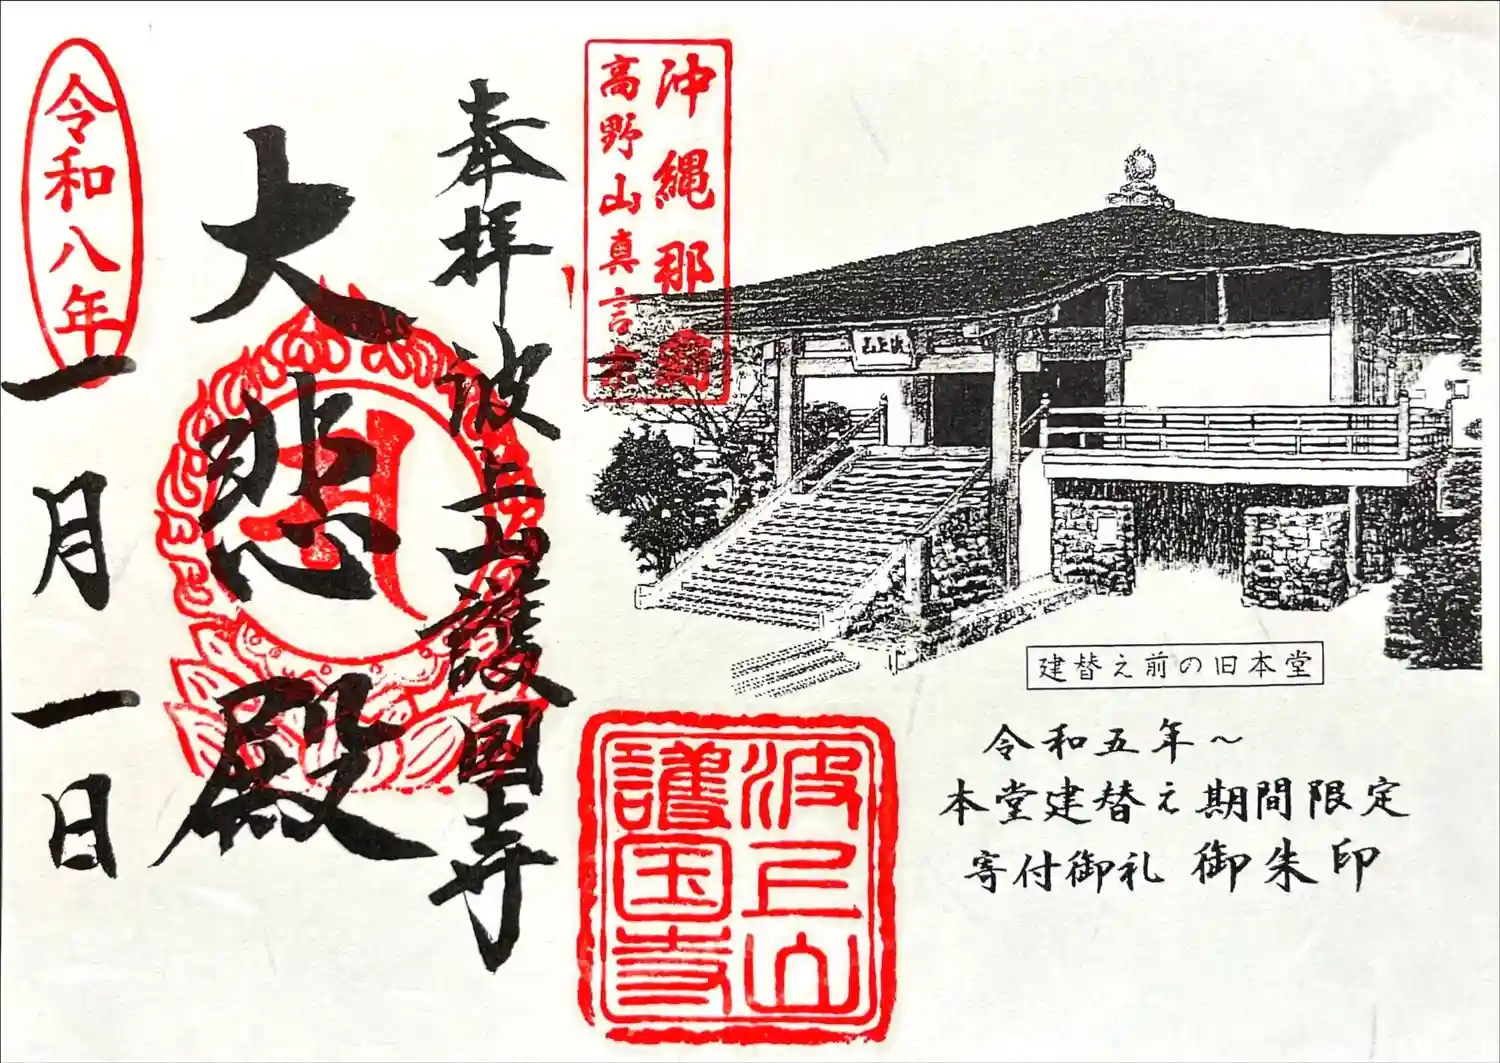 沖縄那覇
高野山真言宗
奉拝 波上山護国寺
大悲殿
令和八年
一月一日
波上山
護国寺
波上山
建替え前の旧本堂
令和五年～
本堂建替え期間限定
寄付御礼 御朱印